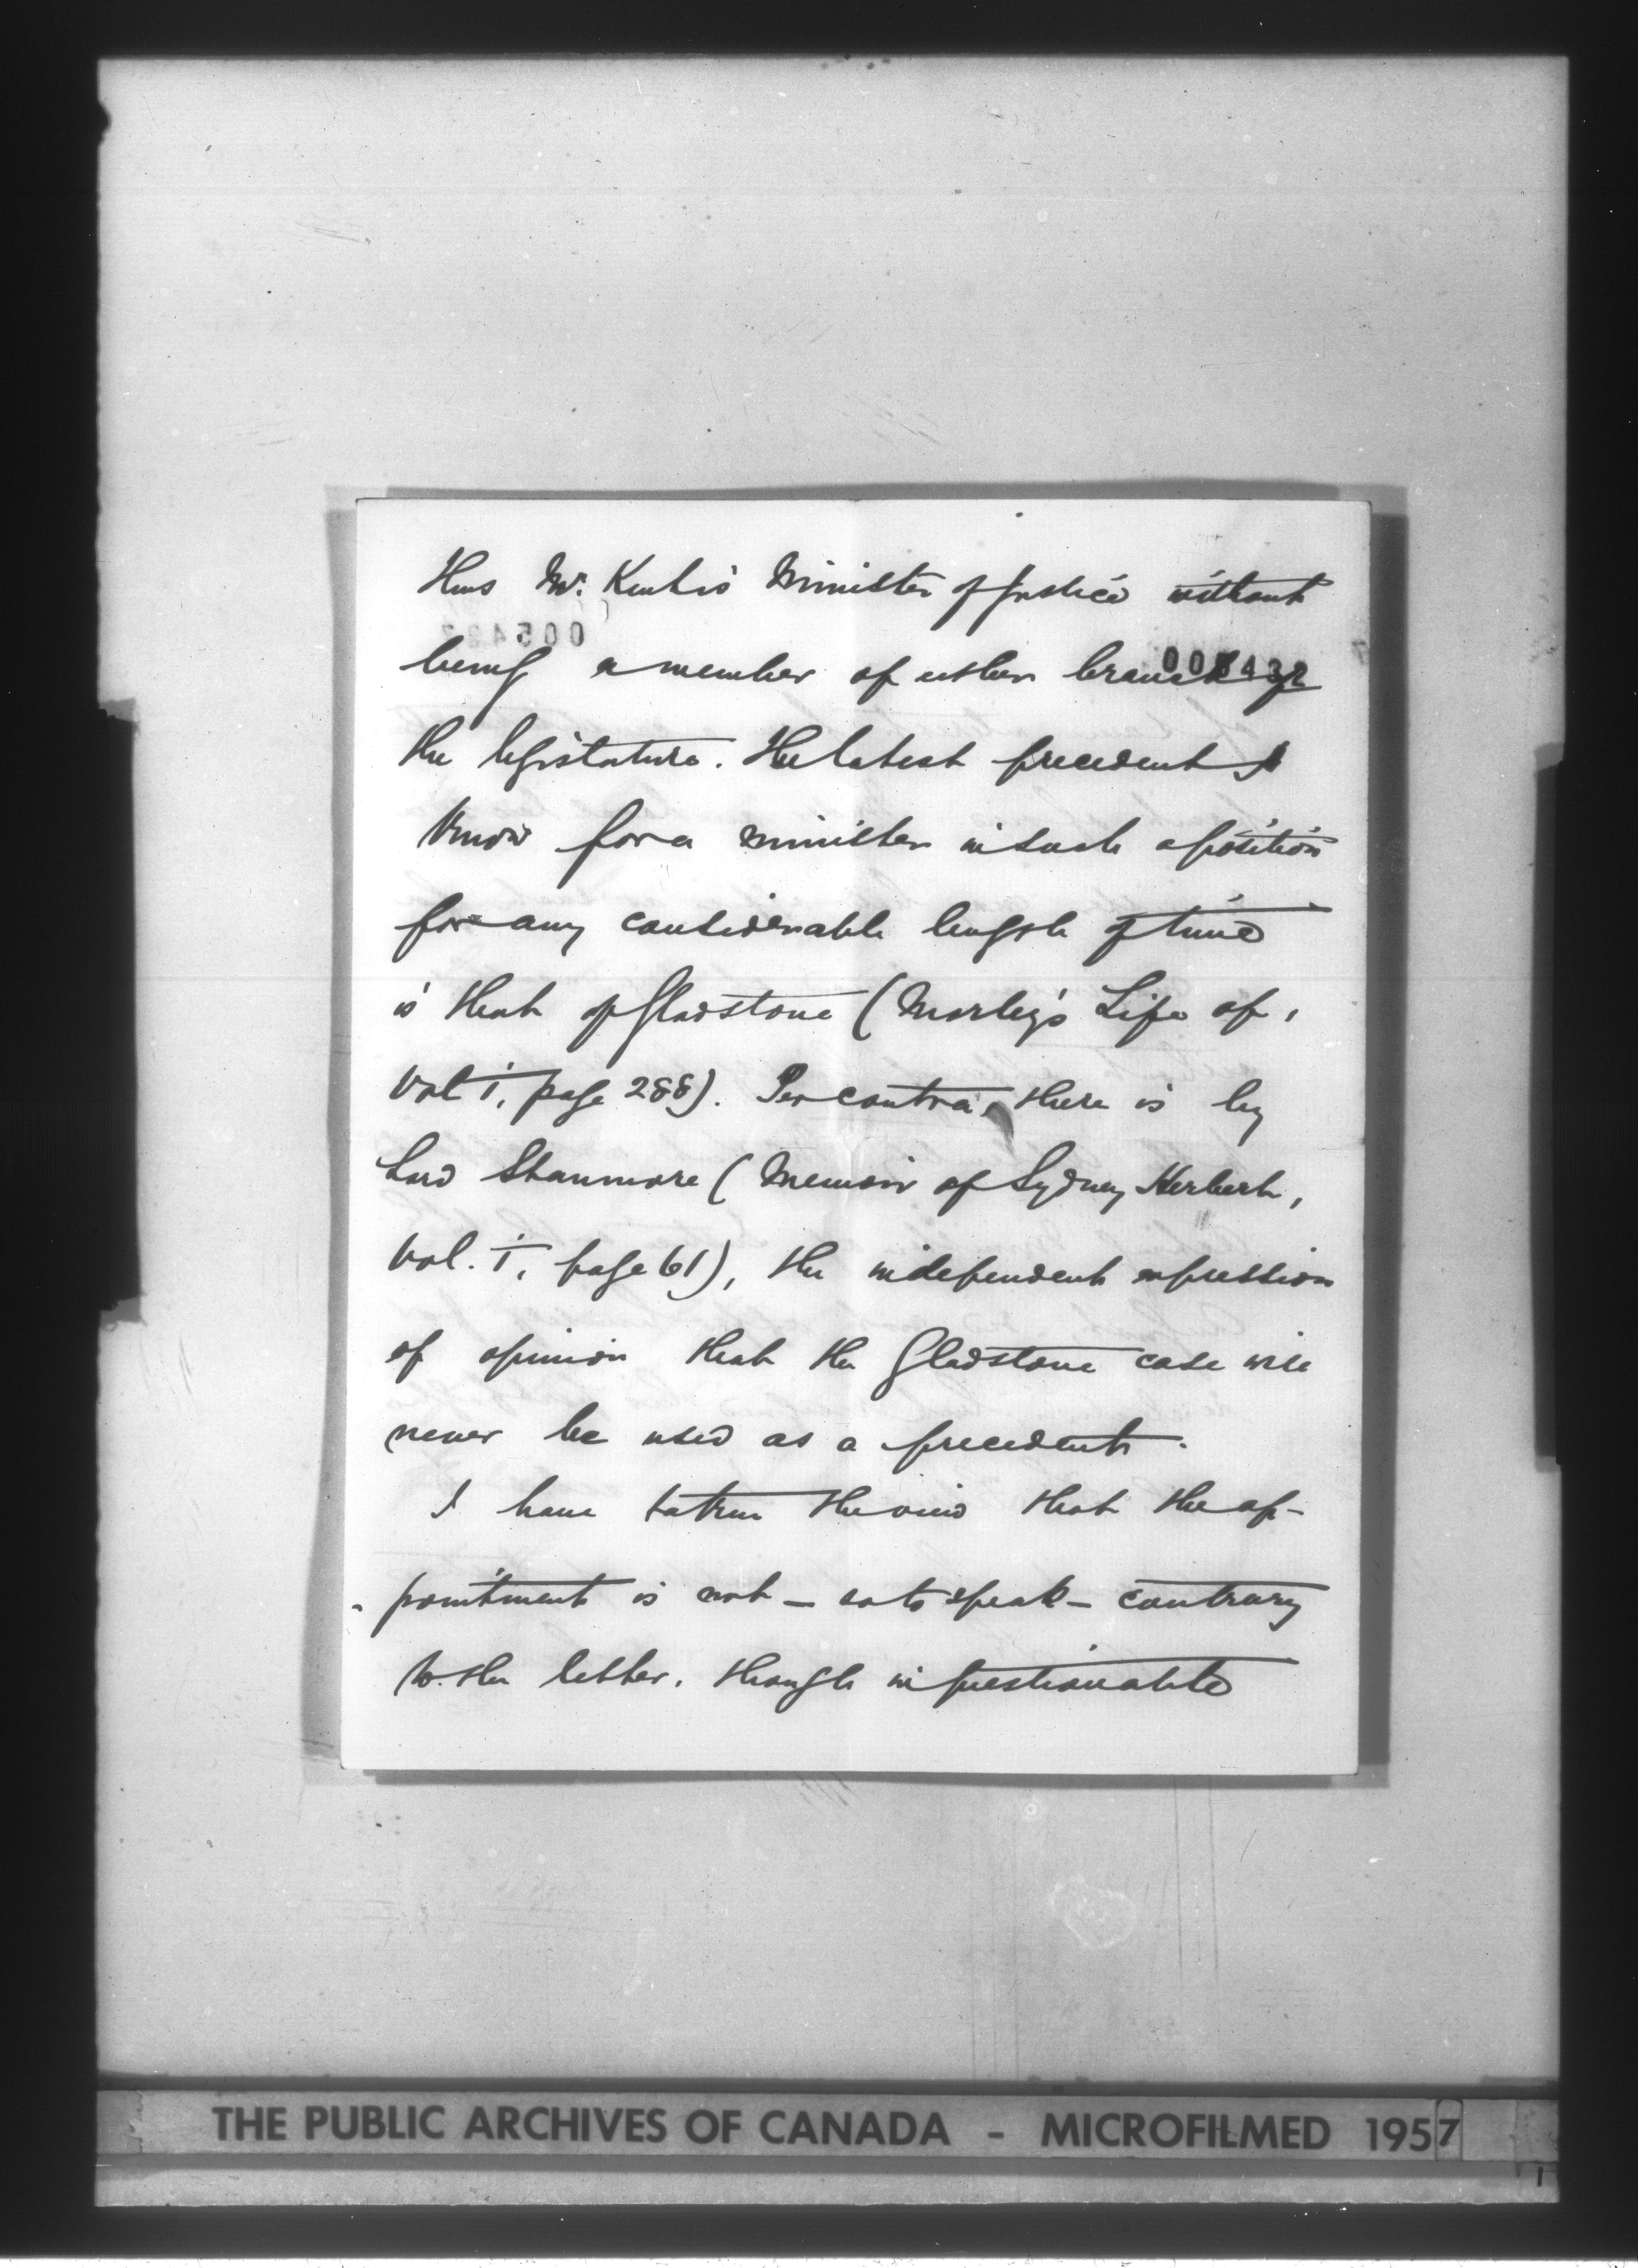 Thus Mr. Kent is Minister of Justice without
005427
being a member of either branch of
005432
the legislature. The latest precedent I
know for a minister in such a position
for any considerable length of time
is that of Gladstone (Morley's Life of,
Vol i, page 288). Per contra, there is by
Lord Stanmore (Memoir of Sydney Herbert,
Vol. i, page 61), the independent expression
of opinion that the Gladstone case will
never be used as a precedent.
I have taken the view that the ap-
-pointment is not - so to speak - contrary
to the letter, though in questionable
THE PUBLIC ARCHIVES OF CANADA - MICROFILMED 1957
1